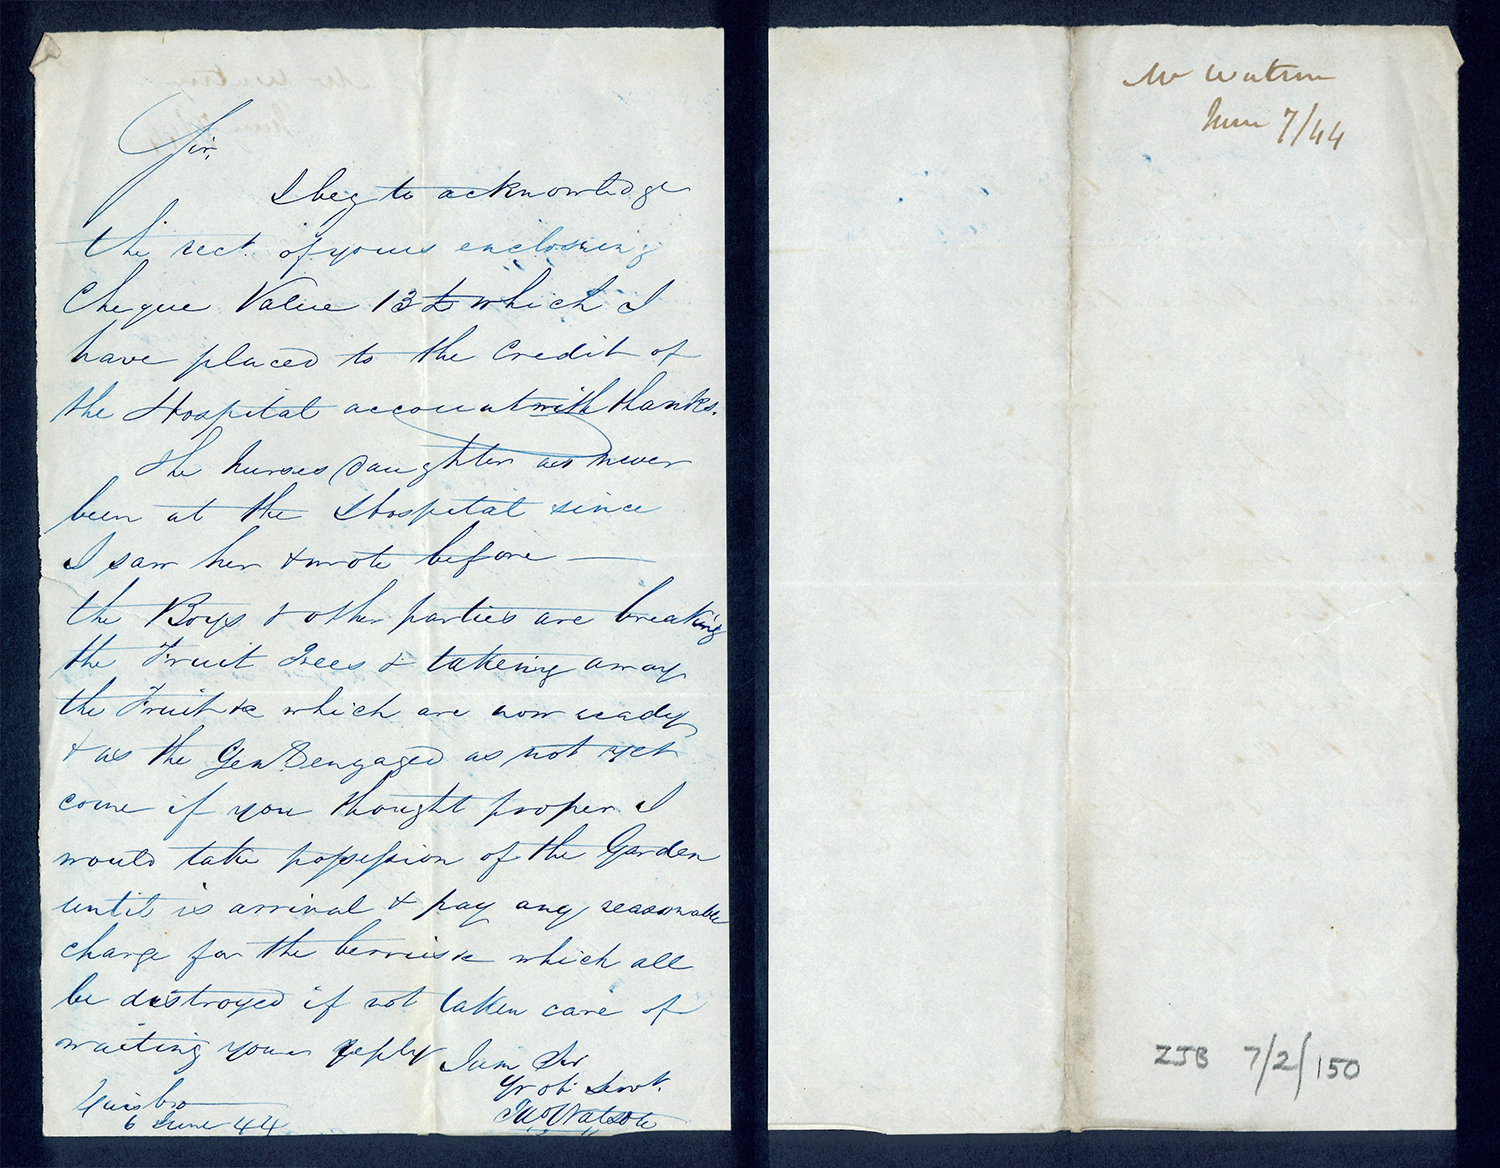 Sir,
I beg to acknowledge
the rect. of yours enclosing
Cheque Value 13£ which I
have placed to the Credit of
the Hospital account with thanks.
The Nurses Daughter as never
been at the Hospital since
I saw her & wrote before —
the Boys & other parties are breaking
the Fruit Trees & takeing away
the Fruit &c which are now ready
& as the Gent engaged as not yet
come if you thought proper I
would take possession of the Garden
until is arrival & pay any reasonable
charge for the berries &c which all
be destroyed if not taken care of
waiting your reply I am Sir
Yr ob. Servt.
Thos Watson
Guisbro
6 June 44
Mr Watson
June 7/44
ZJB 7/2/150